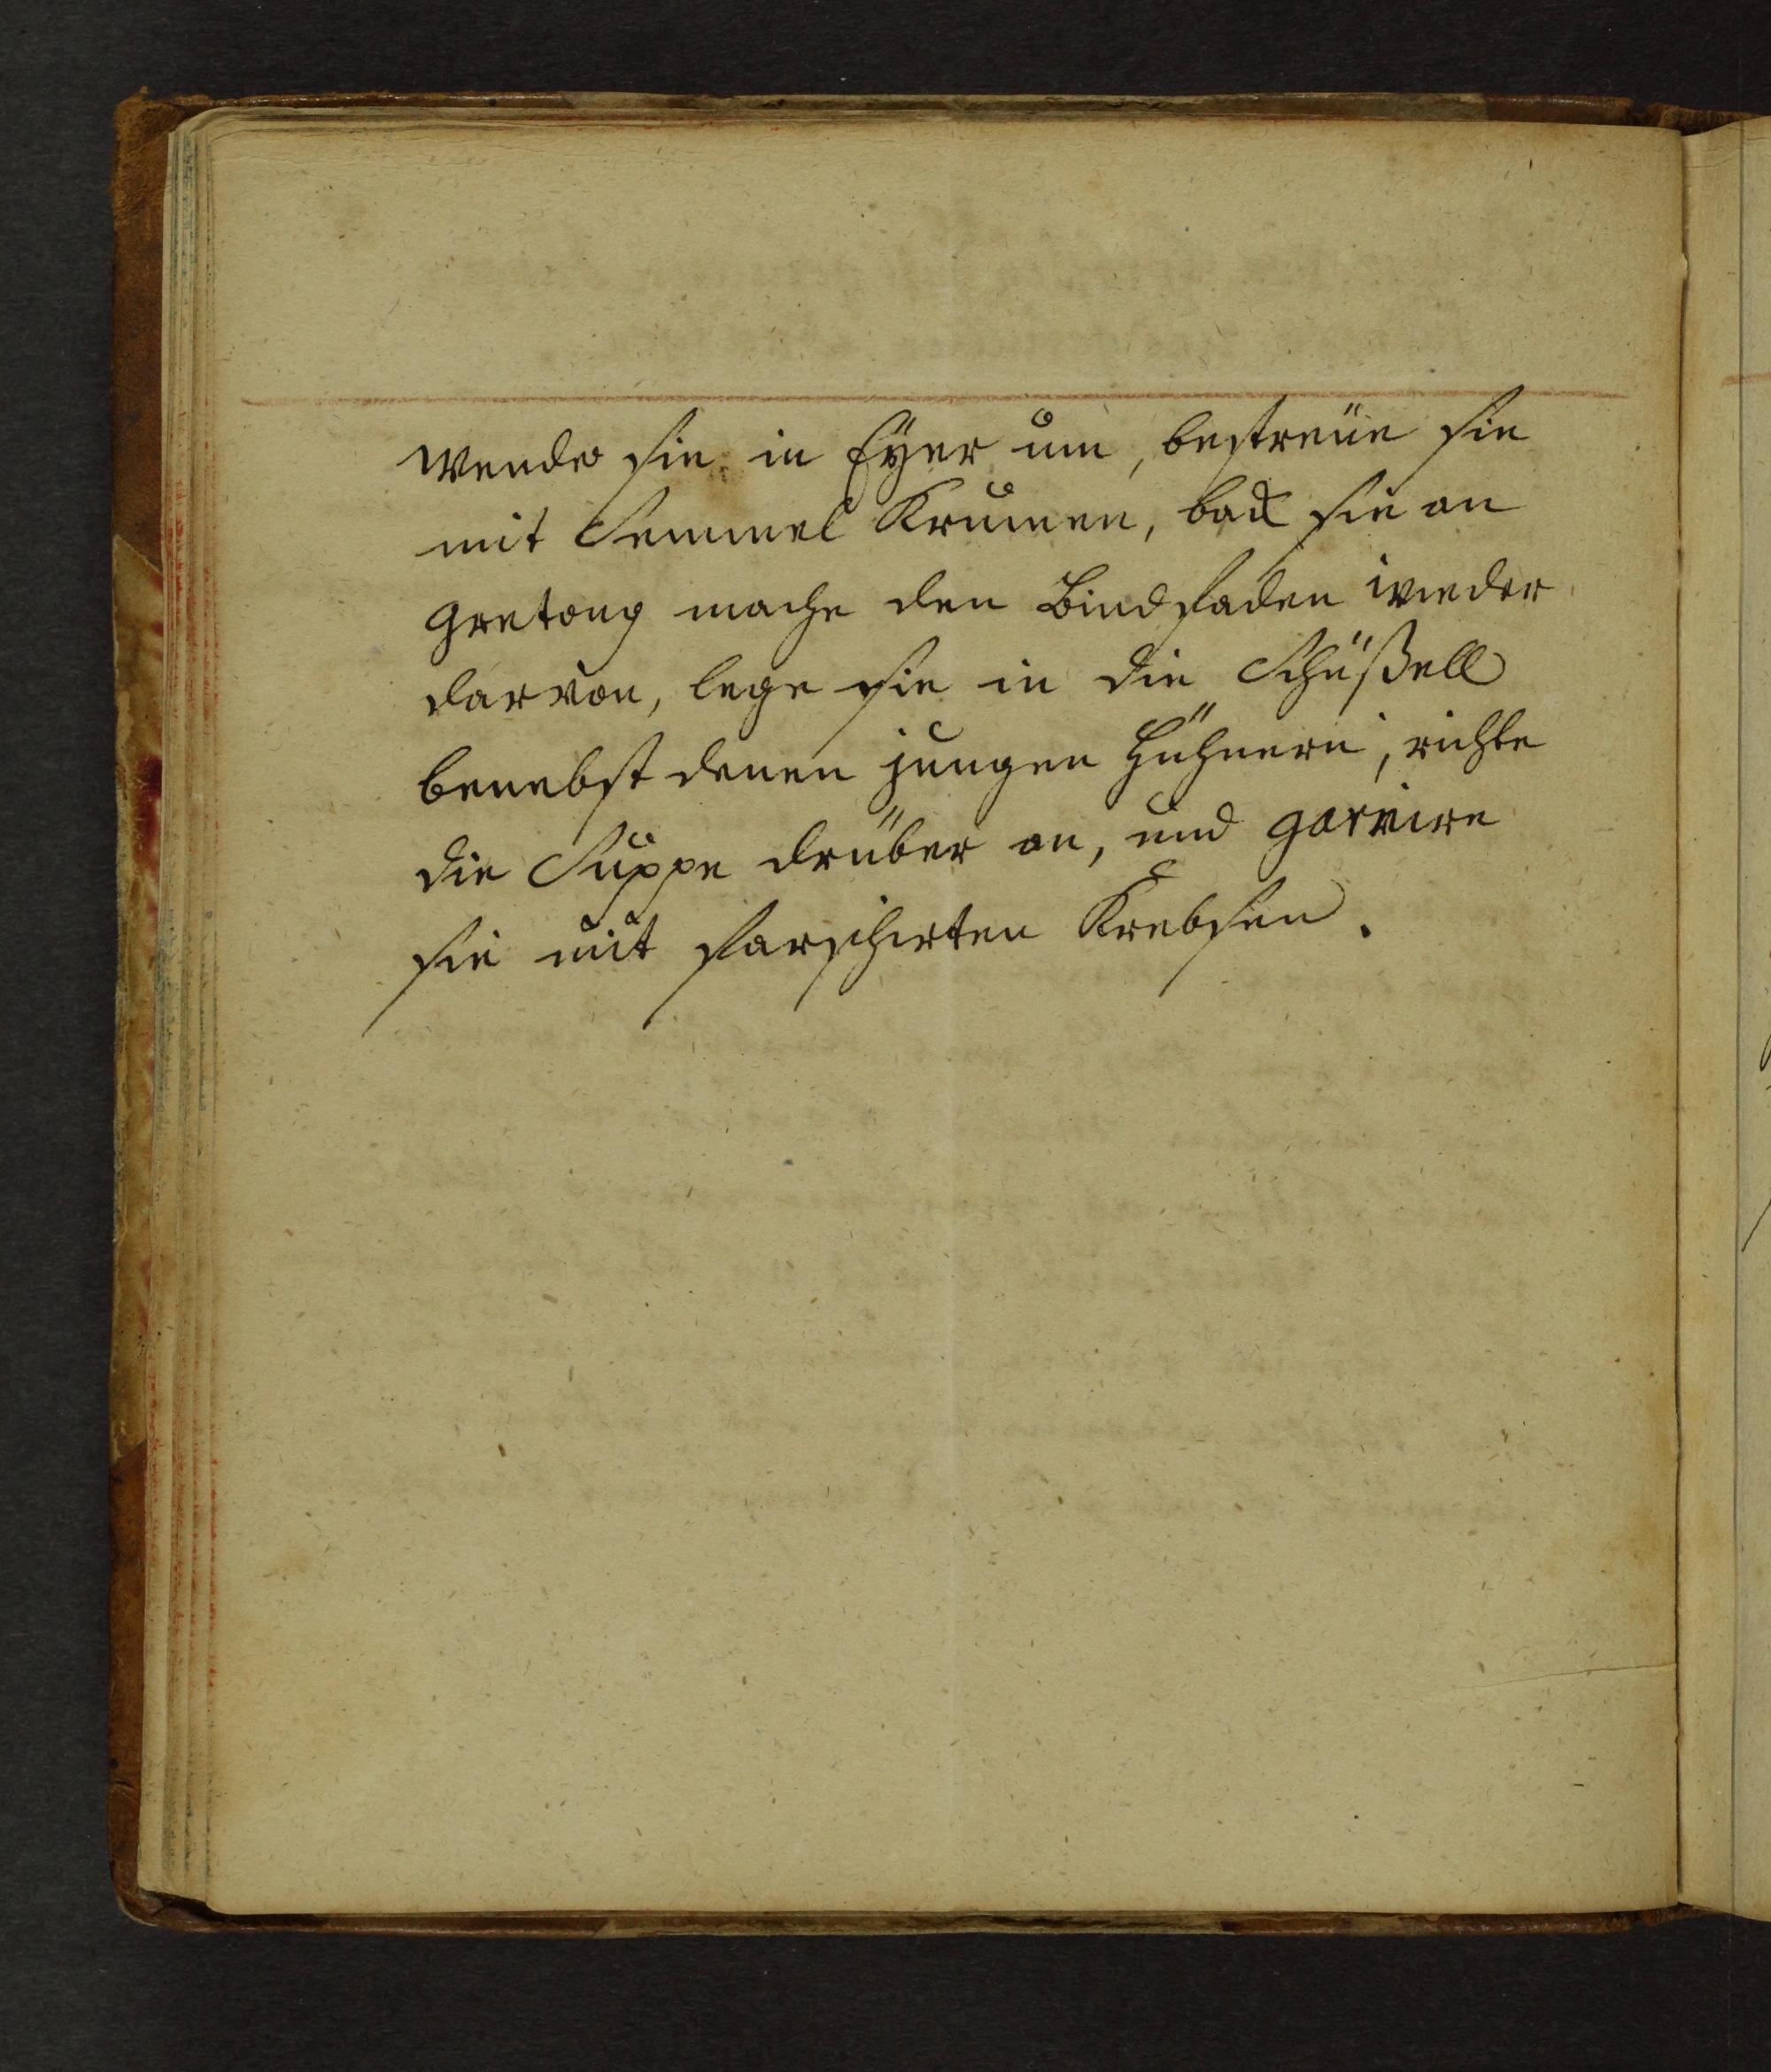 wende sie in Eyer um, bestreüe sie
mit Semmel Krumen, back sie an
gretong mache den Bindfaden wieder
darvon, lege sie in die Schüßell
benebst denen jungen Hühnern, richte
die Suppe drüber an, und garnire
sie mit farschirten Krebsen.